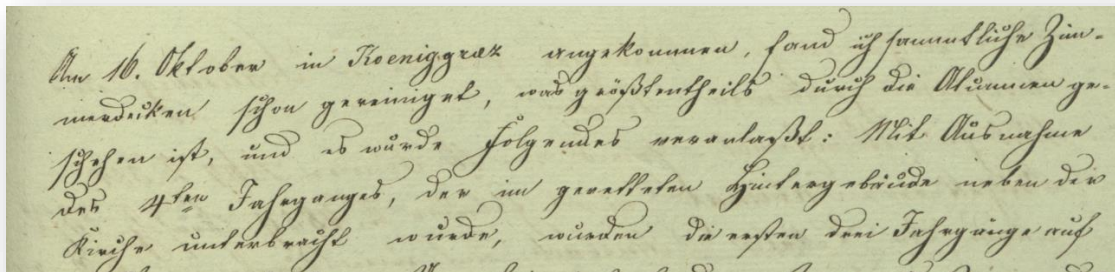 Am 16. Oktober in Koeniggraz angekommen, fand ich sammtliche Zim-
merdecken schon gereiniget, was größtentheils durch die Alumnen ge-
schehen ist, und es wurde Folgendes veranlaßt: Mit Ausnahme
des 4ten Jahrganges, der im geretteten Hintergebäude neben der
Kirche unterbracht wurde, wurden die ersten drei Jahrgänge auf